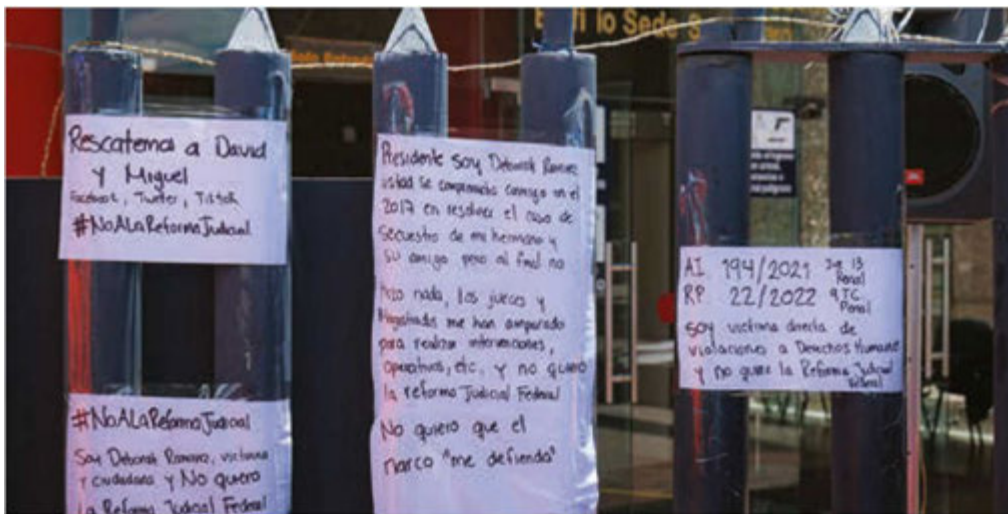 lo Sede S
Rescatemos a David
y Miguel
Facebook, Twitter, TikTok
#NoALaReformaJudicial
#NoALaReformaJudicial
Soy Deborah Ramirez, victima
y ciudadana y No quiero
la Reforma Judicial Federal
Presidente soy Deborah Ramirez
usted se comprometió conmigo en el
2017 en resolver el caso de
secuestro de mi hermano y
su amigo pero al final no
hizo nada, los jueces y
Magistrados me han amparado
para realizar intervenciones,
operativos, etc. y no quiero
la reforma Judicial Federal
No quiero que el
narco "me defienda"
AI 194/2021 13 Penal
RP 22/2022 9 TC Penal
soy victima directa de
violaciones a Derechos Humanos
y no quiero la Reforma Judicial
Federal
JBL